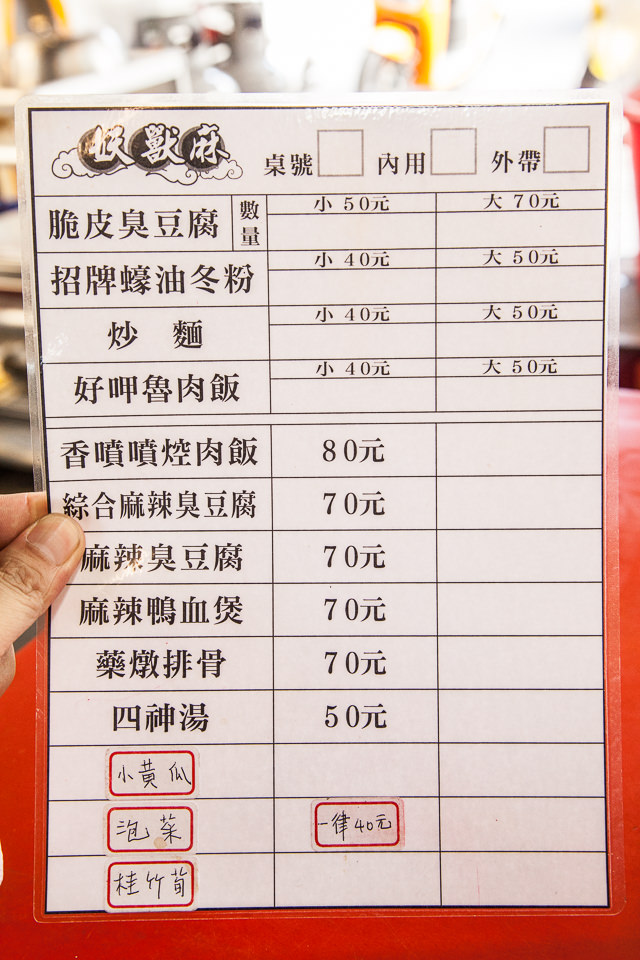 妖獸麻
桌號 內用 外帶
脆皮臭豆腐 數量 小 50元 大 70元
招牌蠔油冬粉 小 40元 大 50元
炒 麵 小 40元 大 50元
好呷魯肉飯 小 40元 大 50元
香噴噴焢肉飯 80元
綜合麻辣臭豆腐 70元
麻辣臭豆腐 70元
麻辣鴨血煲 70元
藥燉排骨 70元
四神湯 50元
小黃瓜
泡菜 一律40元
桂竹荀